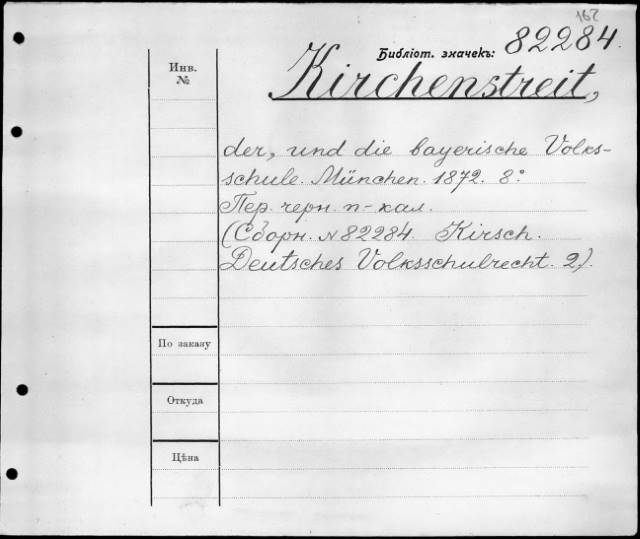 162
Библіот. значекъ: 82284.
Инв.
№
Kirchenstreit,
der, und die bayerische Volks-
schule. München. 1872. 8º
Пер. черн. п-кал.
(Сборн. №82284. Kirsch.
Deutsches Volksschulrecht. 2).
По заказу
Откуда
Цѣна